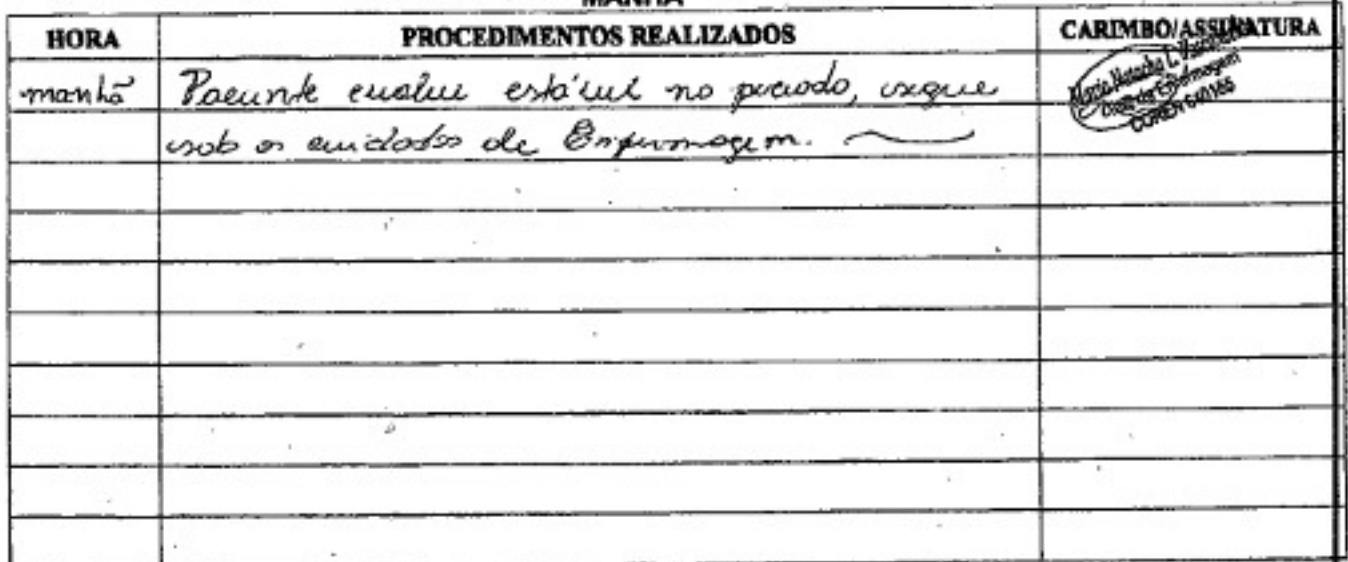 MANHÃ
HORA PROCEDIMENTOS REALIZADOS CARIMBO/ASSINATURA
manhã Paciente evolue estável no periodo, segue
sob os cuidados de Enfermagem.
COREN